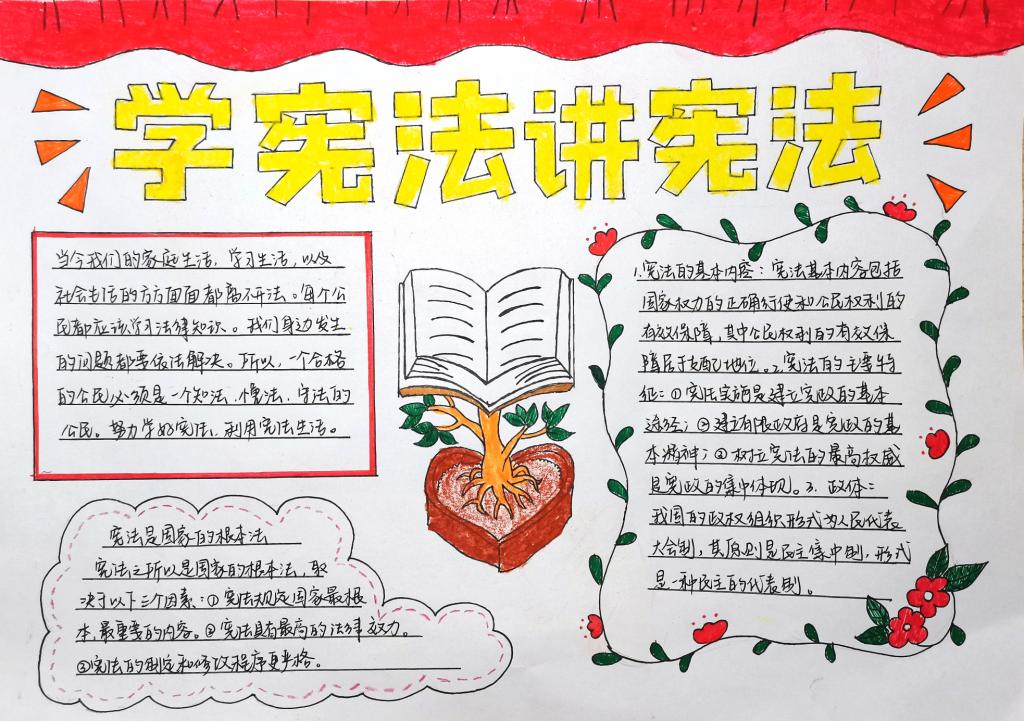 学宪法讲宪法
当今我们的家庭生活，学习生活，以及
社会生活的方方面面都离不开法。每个公
民都应该学习法律知识。我们身边发生
的问题都要依法解决。所以，一个合格
的公民必须是一个知法、懂法、守法的
公民。努力学好宪法，利用宪法生活。
宪法是国家的根本法
宪法之所以是国家的根本法，取
决于以下三个因素：①宪法规定国家最根
本，最重要的内容。②宪法具有最高的法律效力。
③宪法的制定和修改程序更严格。
1.宪法的基本内容：宪法基本内容包括
国家权力的正确行使和公民权利的
有效保障，其中公民权利的有效保
障居于支配地位。2.宪法的主要特
征：①宪法实施是建立宪政的基本
途经；②建立有限政府是宪政的基
本精神；③树立宪法的最高权威
是宪政的集中体现。3.政体：
我国的政权组织形式为人民代表
大会制，其原则是民主集中制，形式
是一种民主的代表制。